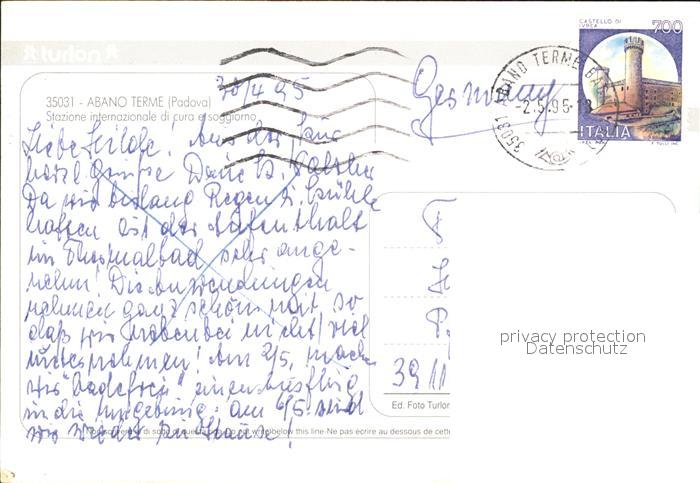 turlon
CASTELLO DI
IVREA
700
ITALIA
35031 ABANO TERME
2.5.95-18
Germany
35031 - ABANO TERME (Padova)
Stazione internazionale di cura e soggiorno
30/4 95
Liebe Hilde! Aus der Kur
herzl. Grüße Deine
Da wir bislang Regen u. Kühle
hatten ist der Aufenthalt
im Thermalbad sehr ange-
nehm! Die Anwendungen
nehmen ganz schön mit, so
daß wir nebenbei nicht viel
unternehmen! Am 2/5. machen
wir "badefrei" einen Ausflug
in die Umgebung. Am 6/5 sind
wir wieder zu Hause!
39 11
privacy protection
Datenschutz
Ed. Foto Turlon
below this line-Ne pas écrire au dessous de cette